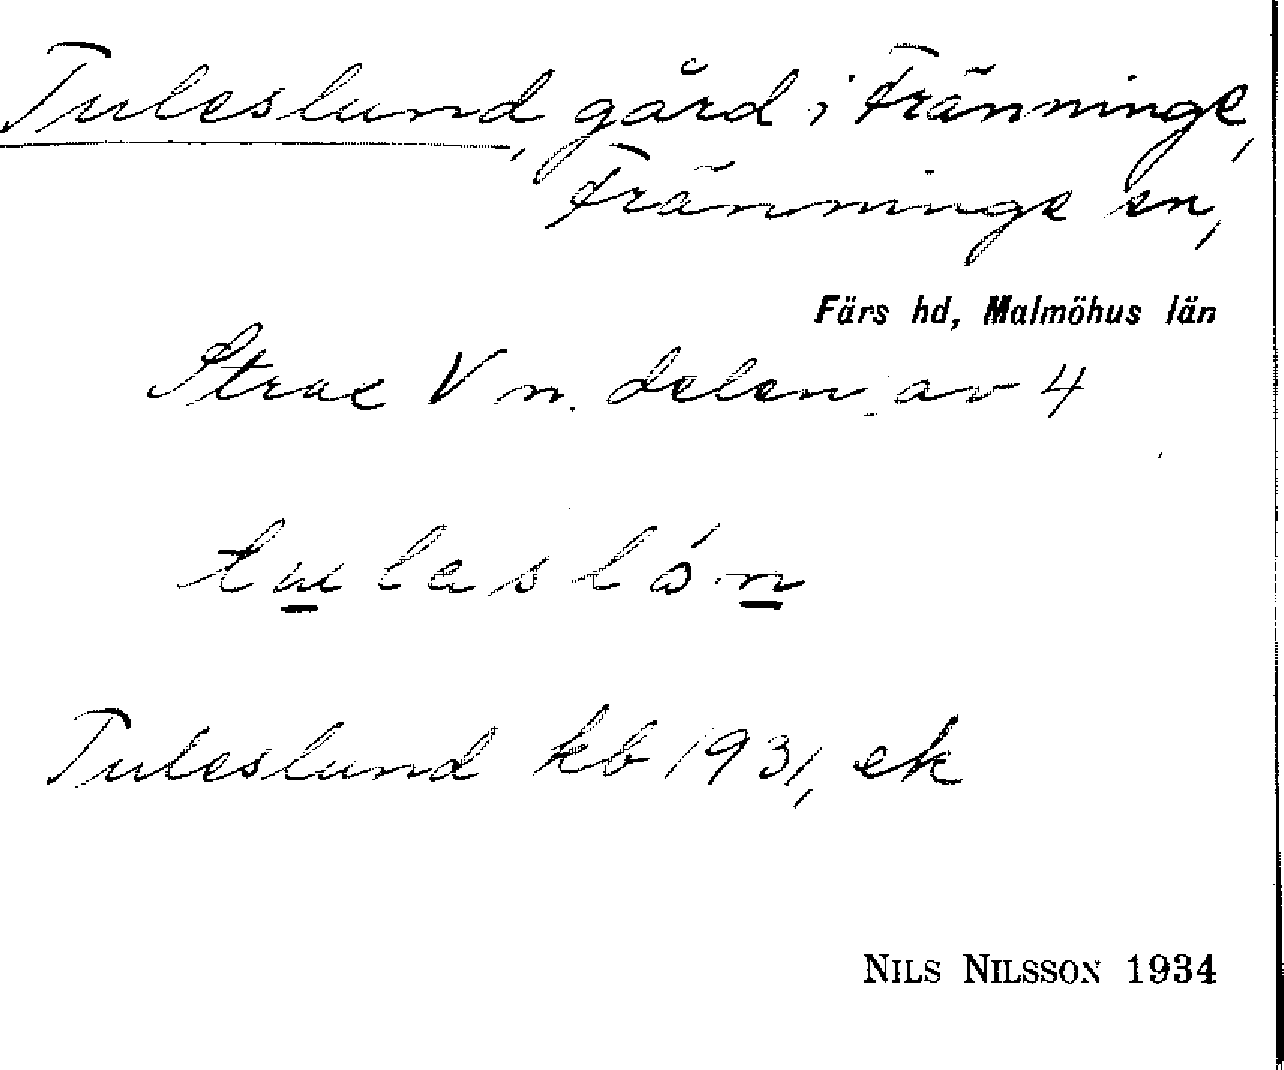 Tuleslund, gård i Fränninge,
Fränninge sn,
Färs hd, Malmöhus län
Strax V n. delen av 4
Tuleslund kb 1931, ek
NILS NILSSON 1934